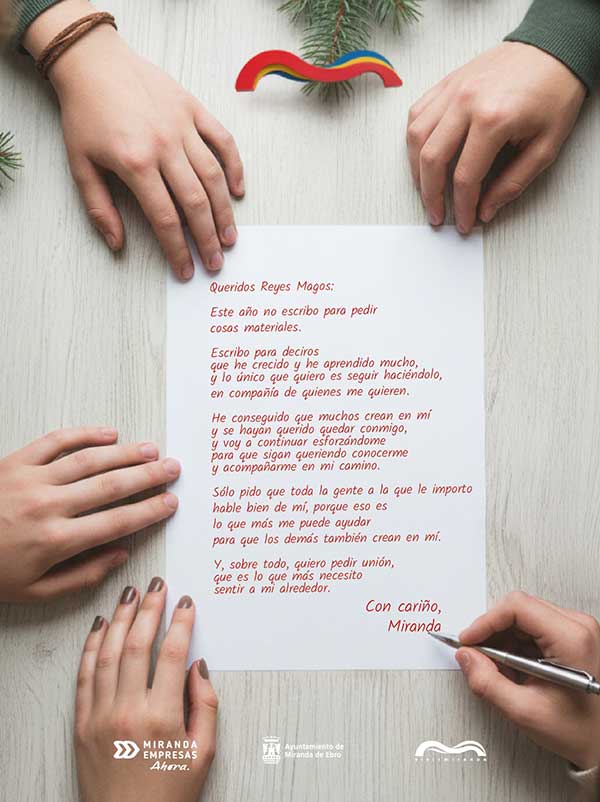 Queridos Reyes Magos:
Este año no escribo para pedir
cosas materiales.
Escribo para deciros
que he crecido y he aprendido mucho,
y lo único que quiero es seguir haciéndolo,
en compañía de quienes me quieren.
He conseguido que muchos crean en mí
y se hayan querido quedar conmigo,
y voy a continuar esforzándome
para que sigan queriendo conocerme
y acompañarme en mi camino.
Sólo pido que toda la gente a la que le importo
hable bien de mí, porque eso es
lo que más me puede ayudar
para que los demás también crean en mí.
Y, sobre todo, quiero pedir unión,
que es lo que más necesito
sentir a mi alrededor.
Con cariño,
Miranda
MIRANDA
EMPRESAS
Ahora.
Ayuntamiento de
Miranda de Ebro
visitmiranda